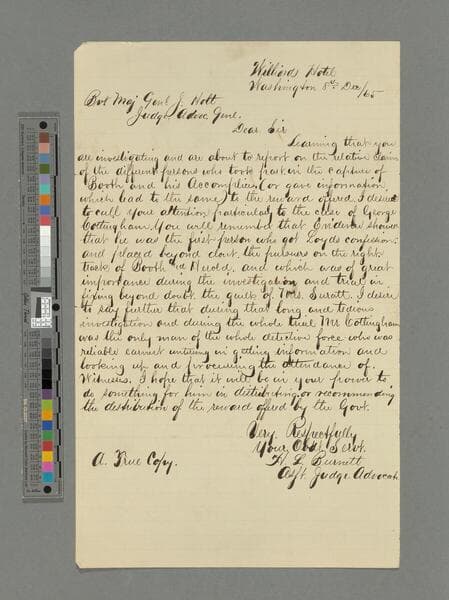 Williards Hotel
Washington 8th Dec/65
Bvt Maj Genl J. Holt
Judge Advoc Genl.
Dear Sir
Learning that you
are investigating and are about to report on the relative claims
of the different persons who took part in the capture of
Booth and his Accomplices (or gave information
which lead to the same) to the reward offered. I desire
to call your attention particularly to the case of George
Cottingham. You will remember that Evidence shows
that he was the first person who got Loyds confession
and placed beyond doubt the pursuers on the right
track of Booth and Herold, and which was of great
importance during the investigation and trial in
fixing beyond doubt the guilt of Mrs. Suratt. I desire
to say further that during that long and tedious
investigation and during the whole trial Mr Cottingham
was the only man of the whole detective force who was
reliable earnest untiring in getting information and
looking up and processing the attendance of
Witnesses. I hope that it will be in your power to
do something for him in distributing or recommending
the distribution of the reward offered by the Govt.
Very Respectfully
Your Obdt Servt.
H L Burnett
A. True Copy.
Asst. Judge Advocate